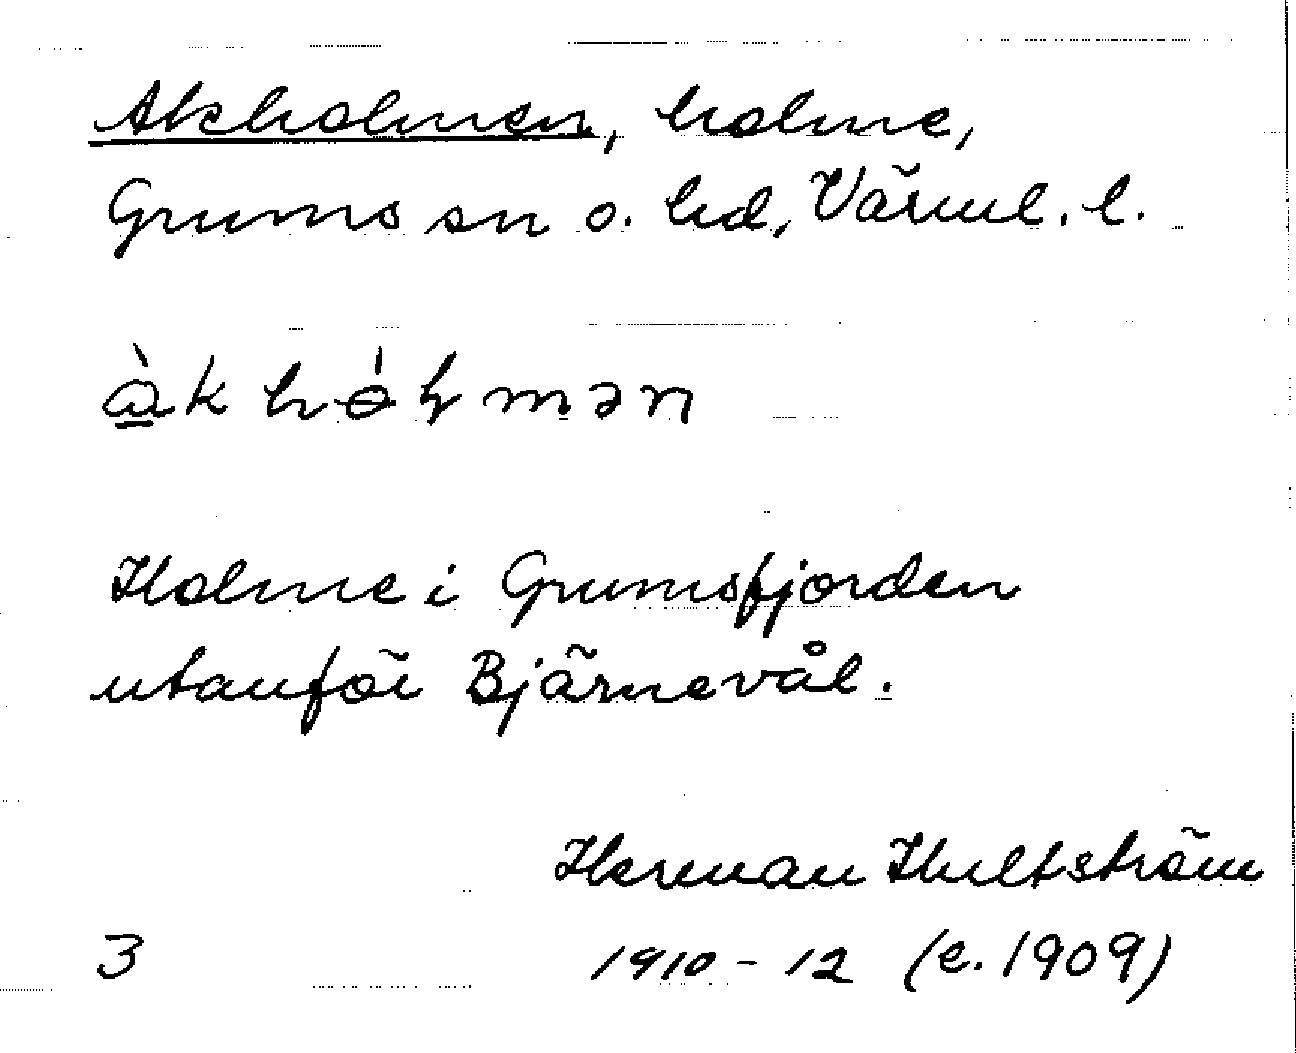 Akholmen, holme,
Grums sn o. hd, Värml. l.
àk hɵ́ɽmən
Holme i Grumsfjorden
utanför Bjärnevål.
Herman Hultström
3 1910-12 (e. 1909)